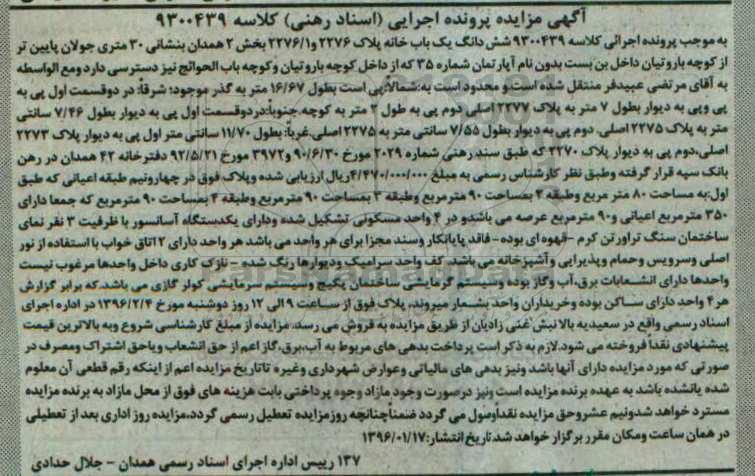 آگهی مزایده پرونده اجرایی (اسناد رهنی) کلاسه ۹۳۰۰۴۳۹
به موجب پرونده اجرائی کلاسه ۹۳۰۰۴۳۹ شش دانگ یک باب خانه پلاک ۲۲۷۶ و۲۲۷۶/۱ بخش ۲ همدان بنشانی ۳۰ متری جولان پایین تر
از کوچه باروتیان داخل بن بست بدون نام آپارتمان شماره ۳۵ که از داخل کوچه باروتیان وکوچه باب الحوائج نیز دسترسی دارد ومع الواسطه
به آقای مرتضی عبیدفر منتقل شده است و محدود است به:شمالاً:پی است بطول ۱۶/۶۷ متر به گذر موجود؛ شرقاً: در دوقسمت اول پی به
پی وپی به دیوار بطول ۷ متر به پلاک ۲۲۷۷ اصلی دوم پی به طول ۲ متر به کوچه.جنوباً:دردوقسمت اول پی به دیوار بطول ۷/۴۶ سانتی
متر به پلاک ۲۲۷۵ اصلی. دوم پی به دیوار بطول ۷/۵۵ سانتی متر به ۲۲۷۵ اصلی.غرباً: بطول ۱۱/۷۰ سانتی متر اول پی به دیوار پلاک ۲۲۷۳
اصلی،دوم پی به دیوار پلاک ۲۲۷۰ که طبق سند رهنی شماره ۲۰۲۹ مورخ ۹۰/۶/۳۰ و۳۹۷۲ مورخ ۹۲/۵/۲۱ دفترخانه ۴۲ همدان در رهن
بانک سپه قرار گرفته وطبق نظر کارشناس رسمی به مبلغ ۴/۴۷۰/۰۰۰/۰۰۰ریال ارزیابی شده وپلاک فوق در چهارونیم طبقه اعیانی که طبق
اول:به مساحت ۸۰ متر مربع وطبقه ۲ بمساحت ۹۰ مترمربع وطبقه ۳ بمساحت ۹۰ مترمربع وطبقه ۴ بمساحت ۹۰ مترمربع که جمعا دارای
۳۵۰ مترمربع اعیانی و۹۰ مترمربع عرصه می باشدو در ۴ واحد مسکونی تشکیل شده ودارای یکدستگاه آسانسور با ظرفیت ۳ نفر نمای
ساختمان سنگ تراورتن کرم -قهوه ای بوده- فاقد پایانکار وسند مجزا برای هر واحد می باشد هر واحد دارای ۲اتاق خواب با استفاده از نور
اصلی وسرویس وحمام وپذیرایی و آشپزخانه می باشد. کف واحد سرامیک ودیوارها رنگ شده - نازک کاری داخل واحدها مرغوب نیست
واحدها دارای انشعابات برق،آب وگاز بوده وسیستم گرمایشی ساختمان پکیج وسیستم سرمایشی کولر گازی می باشد.که برابر گزارش
هر ۴ واحد دارای ساکن بوده وخریداران واحد بشمار میروند، پلاک فوق از ساعت ۹ الی ۱۲ روز دوشنبه مورخ ۱۳۹۶/۲/۴ در اداره اجرای
اسناد رسمی واقع در سعیدیه بالا نبش غنی زادیان از طریق مزایده به فروش می رسد. مزایده از مبلغ کارشناسی شروع وبه بالاترین قیمت
پیشنهادی نقداً فروخته می شود.لازم به ذکر است پرداخت بدهی های مربوط به آب،برق،گاز اعم از حق انشعاب ویاحق اشتراک ومصرف در
صورتی که مورد مزایده دارای آنها باشد ونیز بدهی های مالیاتی وعوارض شهرداری وغیره تاتاریخ مزایده اعم از اینکه رقم قطعی آن معلوم
شده یانشده باشد به عهده برنده مزایده است ونیز درصورت وجود مازاد وجوه پرداختی بابت هزینه های فوق از محل مازاد به برنده مزایده
مسترد خواهد شدونیم عشروحق مزایده نقداًوصول می گردد ضمناًچنانچه روزمزایده تعطیل رسمی گردد،مزایده روز اداری بعد از تعطیلی
در همان ساعت ومکان مقرر برگزار خواهد شد.تاریخ انتشار:۱۳۹۶/۰۱/۱۷
۱۳۷ رییس اداره اجرای اسناد رسمی همدان - جلال حدادی